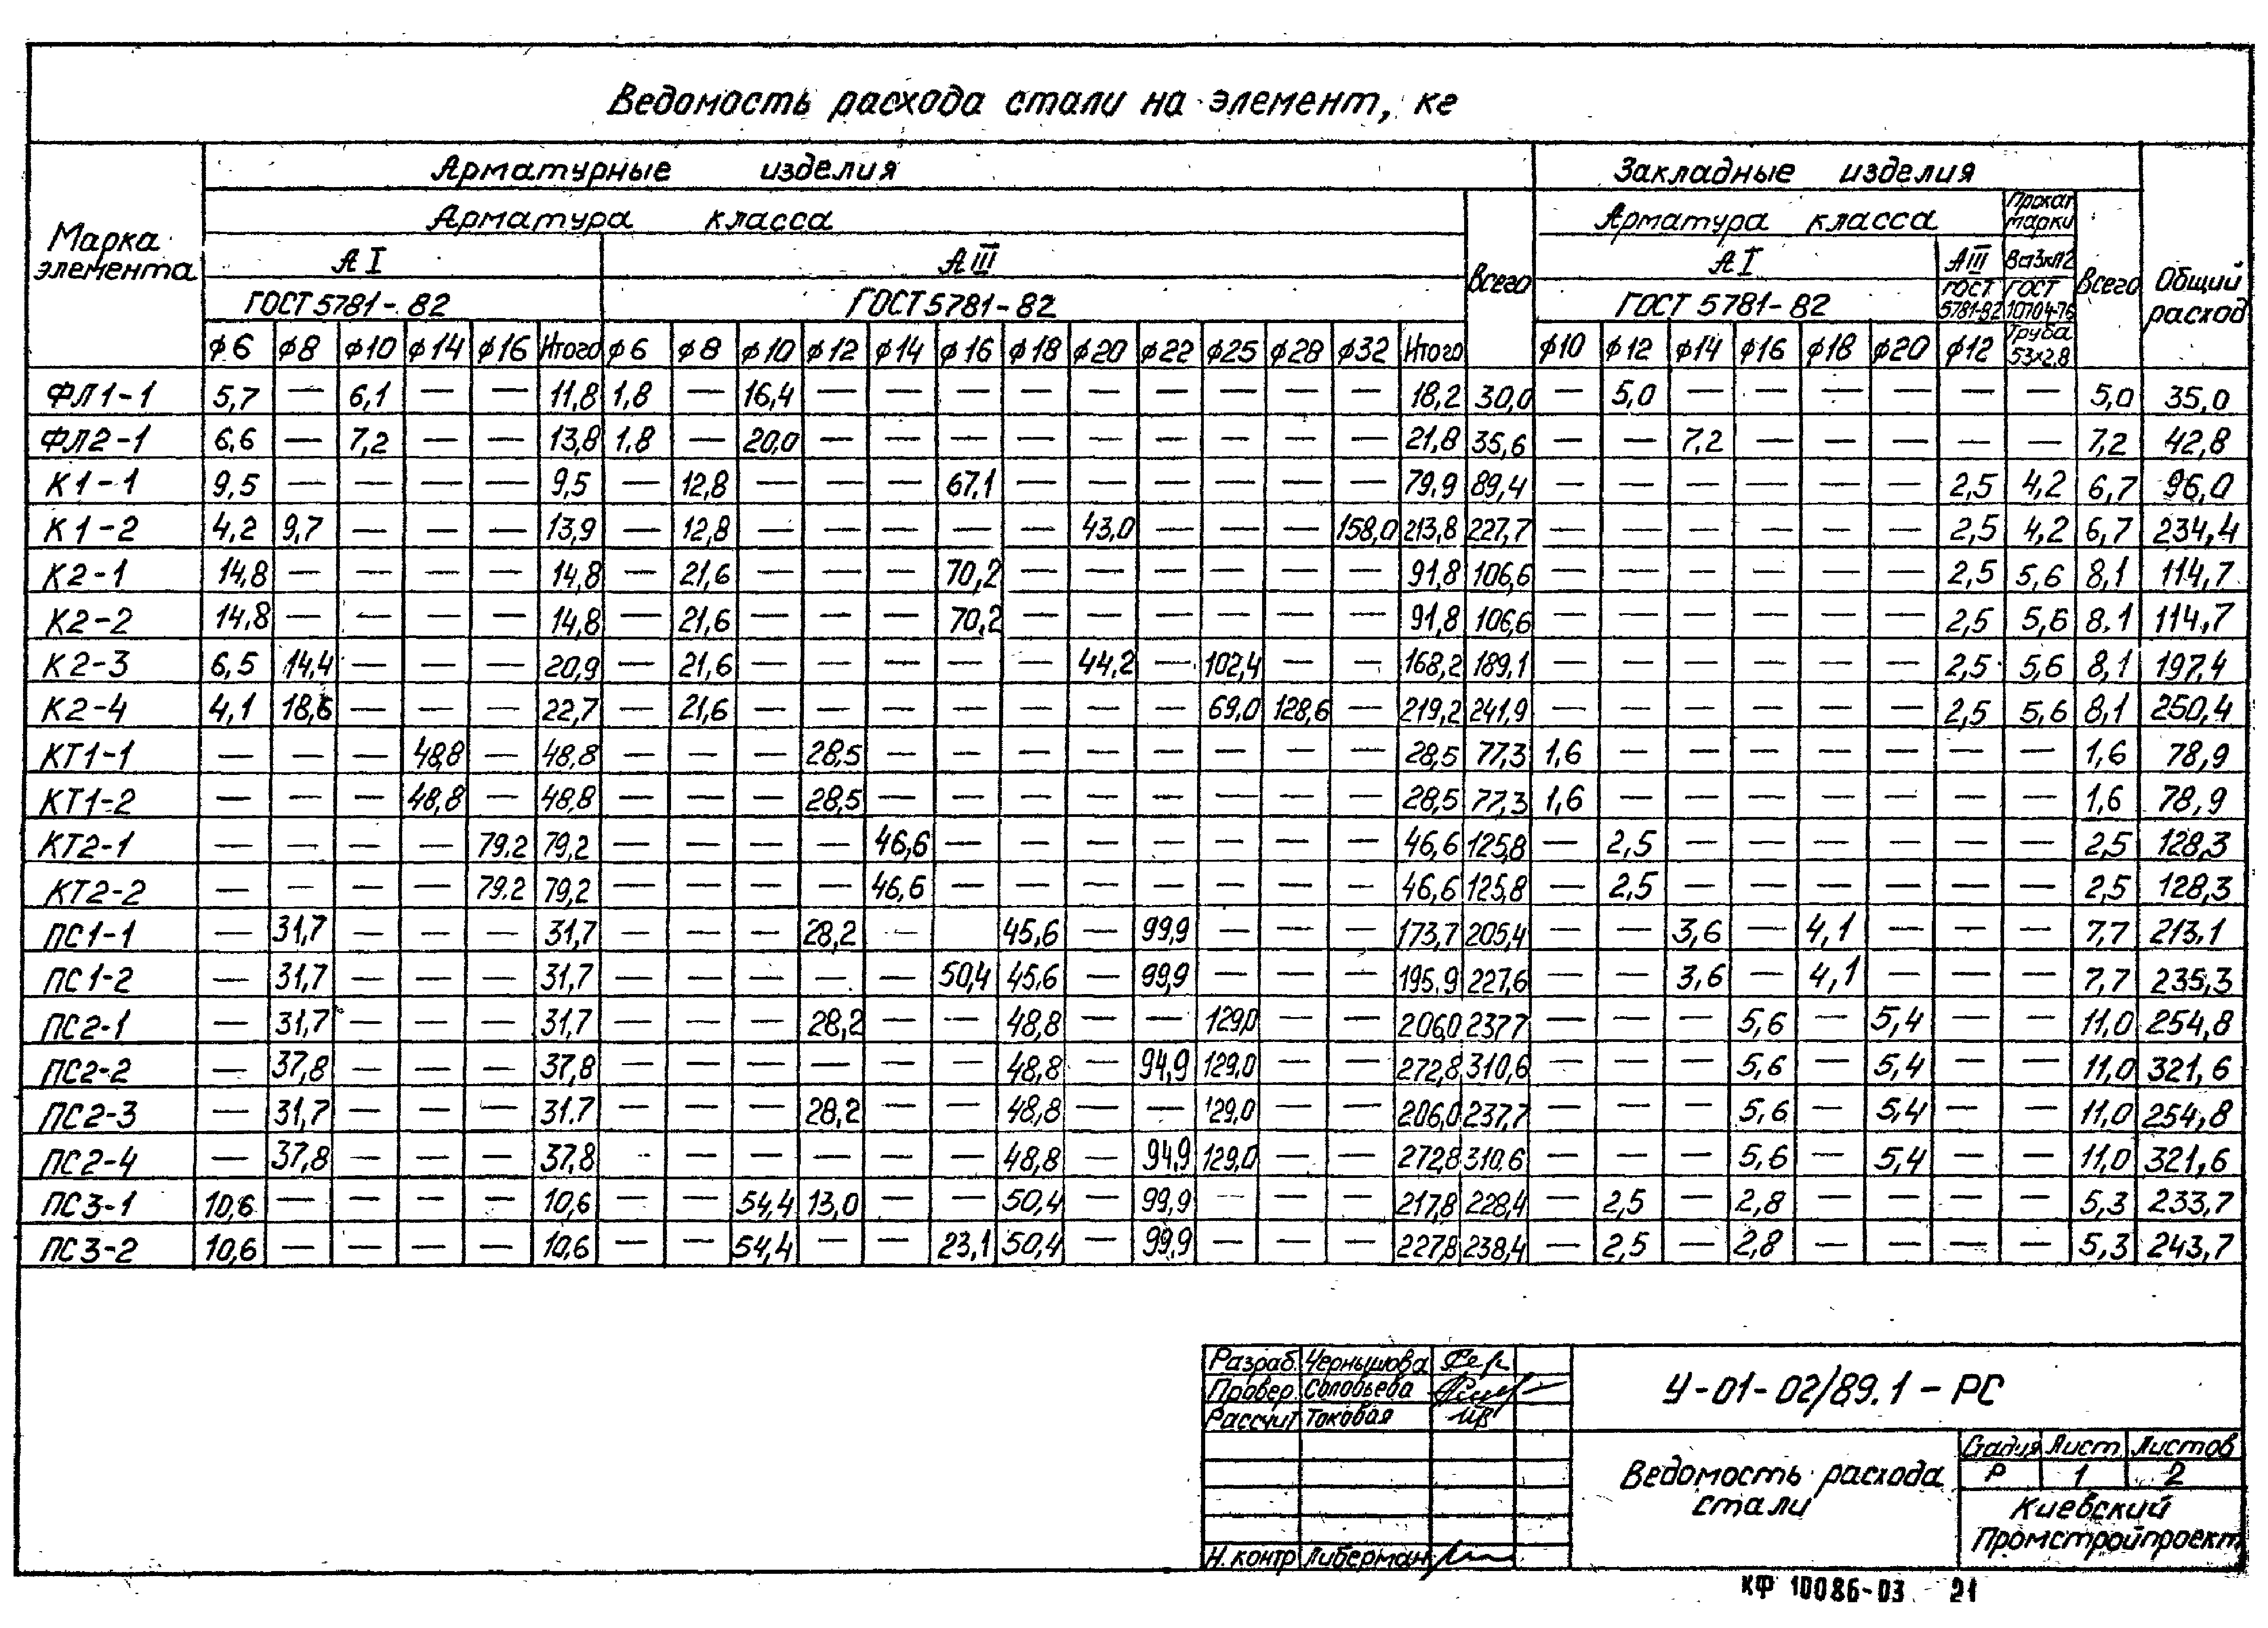 Ведомость расхода стали на элемент, кг
Марка элемента
Арматурные изделия
Закладные изделия
Общий расход
Арматура класса
Всего
Арматура класса
Прокат марки
Всего
А I
А III
А I
А III
ГОСТ 5781-82
ГОСТ 5781-82
ГОСТ 5781-82
ГОСТ 5781-82
ГОСТ 10704-76
ф6 ф8 ф10 ф14 ф16 Итого ф6 ф8 ф10 ф12 ф14 ф16 ф18 ф20 ф22 ф25 ф28 ф32 Итого ф10 ф12 ф14 ф16 ф18 ф20 ф12 Труба 53×2,8
ФЛ1-1 5,7 — 6,1 — — 11,8 1,8 — 16,4 — — — — — — — — — 18,2 30,0 — 5,0 — — — — — — 5,0 35,0
ФЛ2-1 6,6 — 7,2 — — 13,8 1,8 — 20,0 — — — — — — — — — 21,8 35,6 — — 7,2 — — — — — 7,2 42,8
К1-1 9,5 — — — — 9,5 — 12,8 — — — 67,1 — — — — — — 79,9 89,4 — — — — — — 2,5 4,2 6,7 96,0
К1-2 4,2 9,7 — — — 13,9 — 12,8 — — — — — 43,0 — — — 158,0 213,8 227,7 — — — — — — 2,5 4,2 6,7 234,4
К2-1 14,8 — — — — 14,8 — 21,6 — — — 70,2 — — — — — — 91,8 106,6 — — — — — — 2,5 5,6 8,1 114,7
К2-2 14,8 — — — — 14,8 — 21,6 — — — 70,2 — — — — — — 91,8 106,6 — — — — — — 2,5 5,6 8,1 114,7
К2-3 6,5 14,4 — — — 20,9 — 21,6 — — — — — 44,2 — 102,4 — — 168,2 189,1 — — — — — — 2,5 5,6 8,1 197,4
К2-4 4,1 18,6 — — — 22,7 — 21,6 — — — — — — — 69,0 128,6 — 219,2 241,9 — — — — — — 2,5 5,6 8,1 250,4
КТ1-1 — — — 48,8 — 48,8 — — — 28,5 — — — — — — — — 28,5 77,3 1,6 — — — — — — — 1,6 78,9
КТ1-2 — — — 48,8 — 48,8 — — — 28,5 — — — — — — — — 28,5 77,3 1,6 — — — — — — — 1,6 78,9
КТ2-1 — — — — 79,2 79,2 — — — — 46,6 — — — — — — — 46,6 125,8 — 2,5 — — — — — — 2,5 128,3
КТ2-2 — — — — 79,2 79,2 — — — — 46,6 — — — — — — — 46,6 125,8 — 2,5 — — — — — — 2,5 128,3
ПС1-1 — 31,7 — — — 31,7 — — — 28,2 — 45,6 — 99,9 — — — 173,7 205,4 — — 3,6 — 4,1 — — — 7,7 213,1
ПС1-2 — 31,7 — — — 31,7 — — — — — 50,4 45,6 — 99,9 — — — 195,9 227,6 — — 3,6 — 4,1 — — — 7,7 235,3
ПС2-1 — 31,7 — — — 31,7 — — — 28,2 — — 48,8 — — 129,0 — — 206,0 237,7 — — — 5,6 — 5,4 — — 11,0 254,8
ПС2-2 — 37,8 — — — 37,8 — — — — — — 48,8 — 94,9 129,0 — — 272,8 310,6 — — — 5,6 — 5,4 — — 11,0 321,6
ПС2-3 — 31,7 — — — 31,7 — — — 28,2 — — 48,8 — — 129,0 — — 206,0 237,7 — — — 5,6 — 5,4 — — 11,0 254,8
ПС2-4 — 37,8 — — — 37,8 — — — — — — 48,8 — 94,9 129,0 — — 272,8 310,6 — — — 5,6 — 5,4 — — 11,0 321,6
ПС3-1 10,6 — — — — 10,6 — — 54,4 13,0 — — 50,4 — 99,9 — — — 217,8 228,4 — 2,5 — 2,8 — — — — 5,3 233,7
ПС3-2 10,6 — — — — 10,6 — — 54,4 — — 23,1 50,4 — 99,9 — — — 227,8 238,4 — 2,5 — 2,8 — — — — 5,3 243,7
Разраб. Чернышова
Провер. Соловьева
Рассчит Токовая
Н. контр Либерман
У-01-02/89.1-РС
Ведомость расхода стали
Стадия Лист Листов
Р 1 2
Киевский Промстройпроект
КФ 10086-03 21